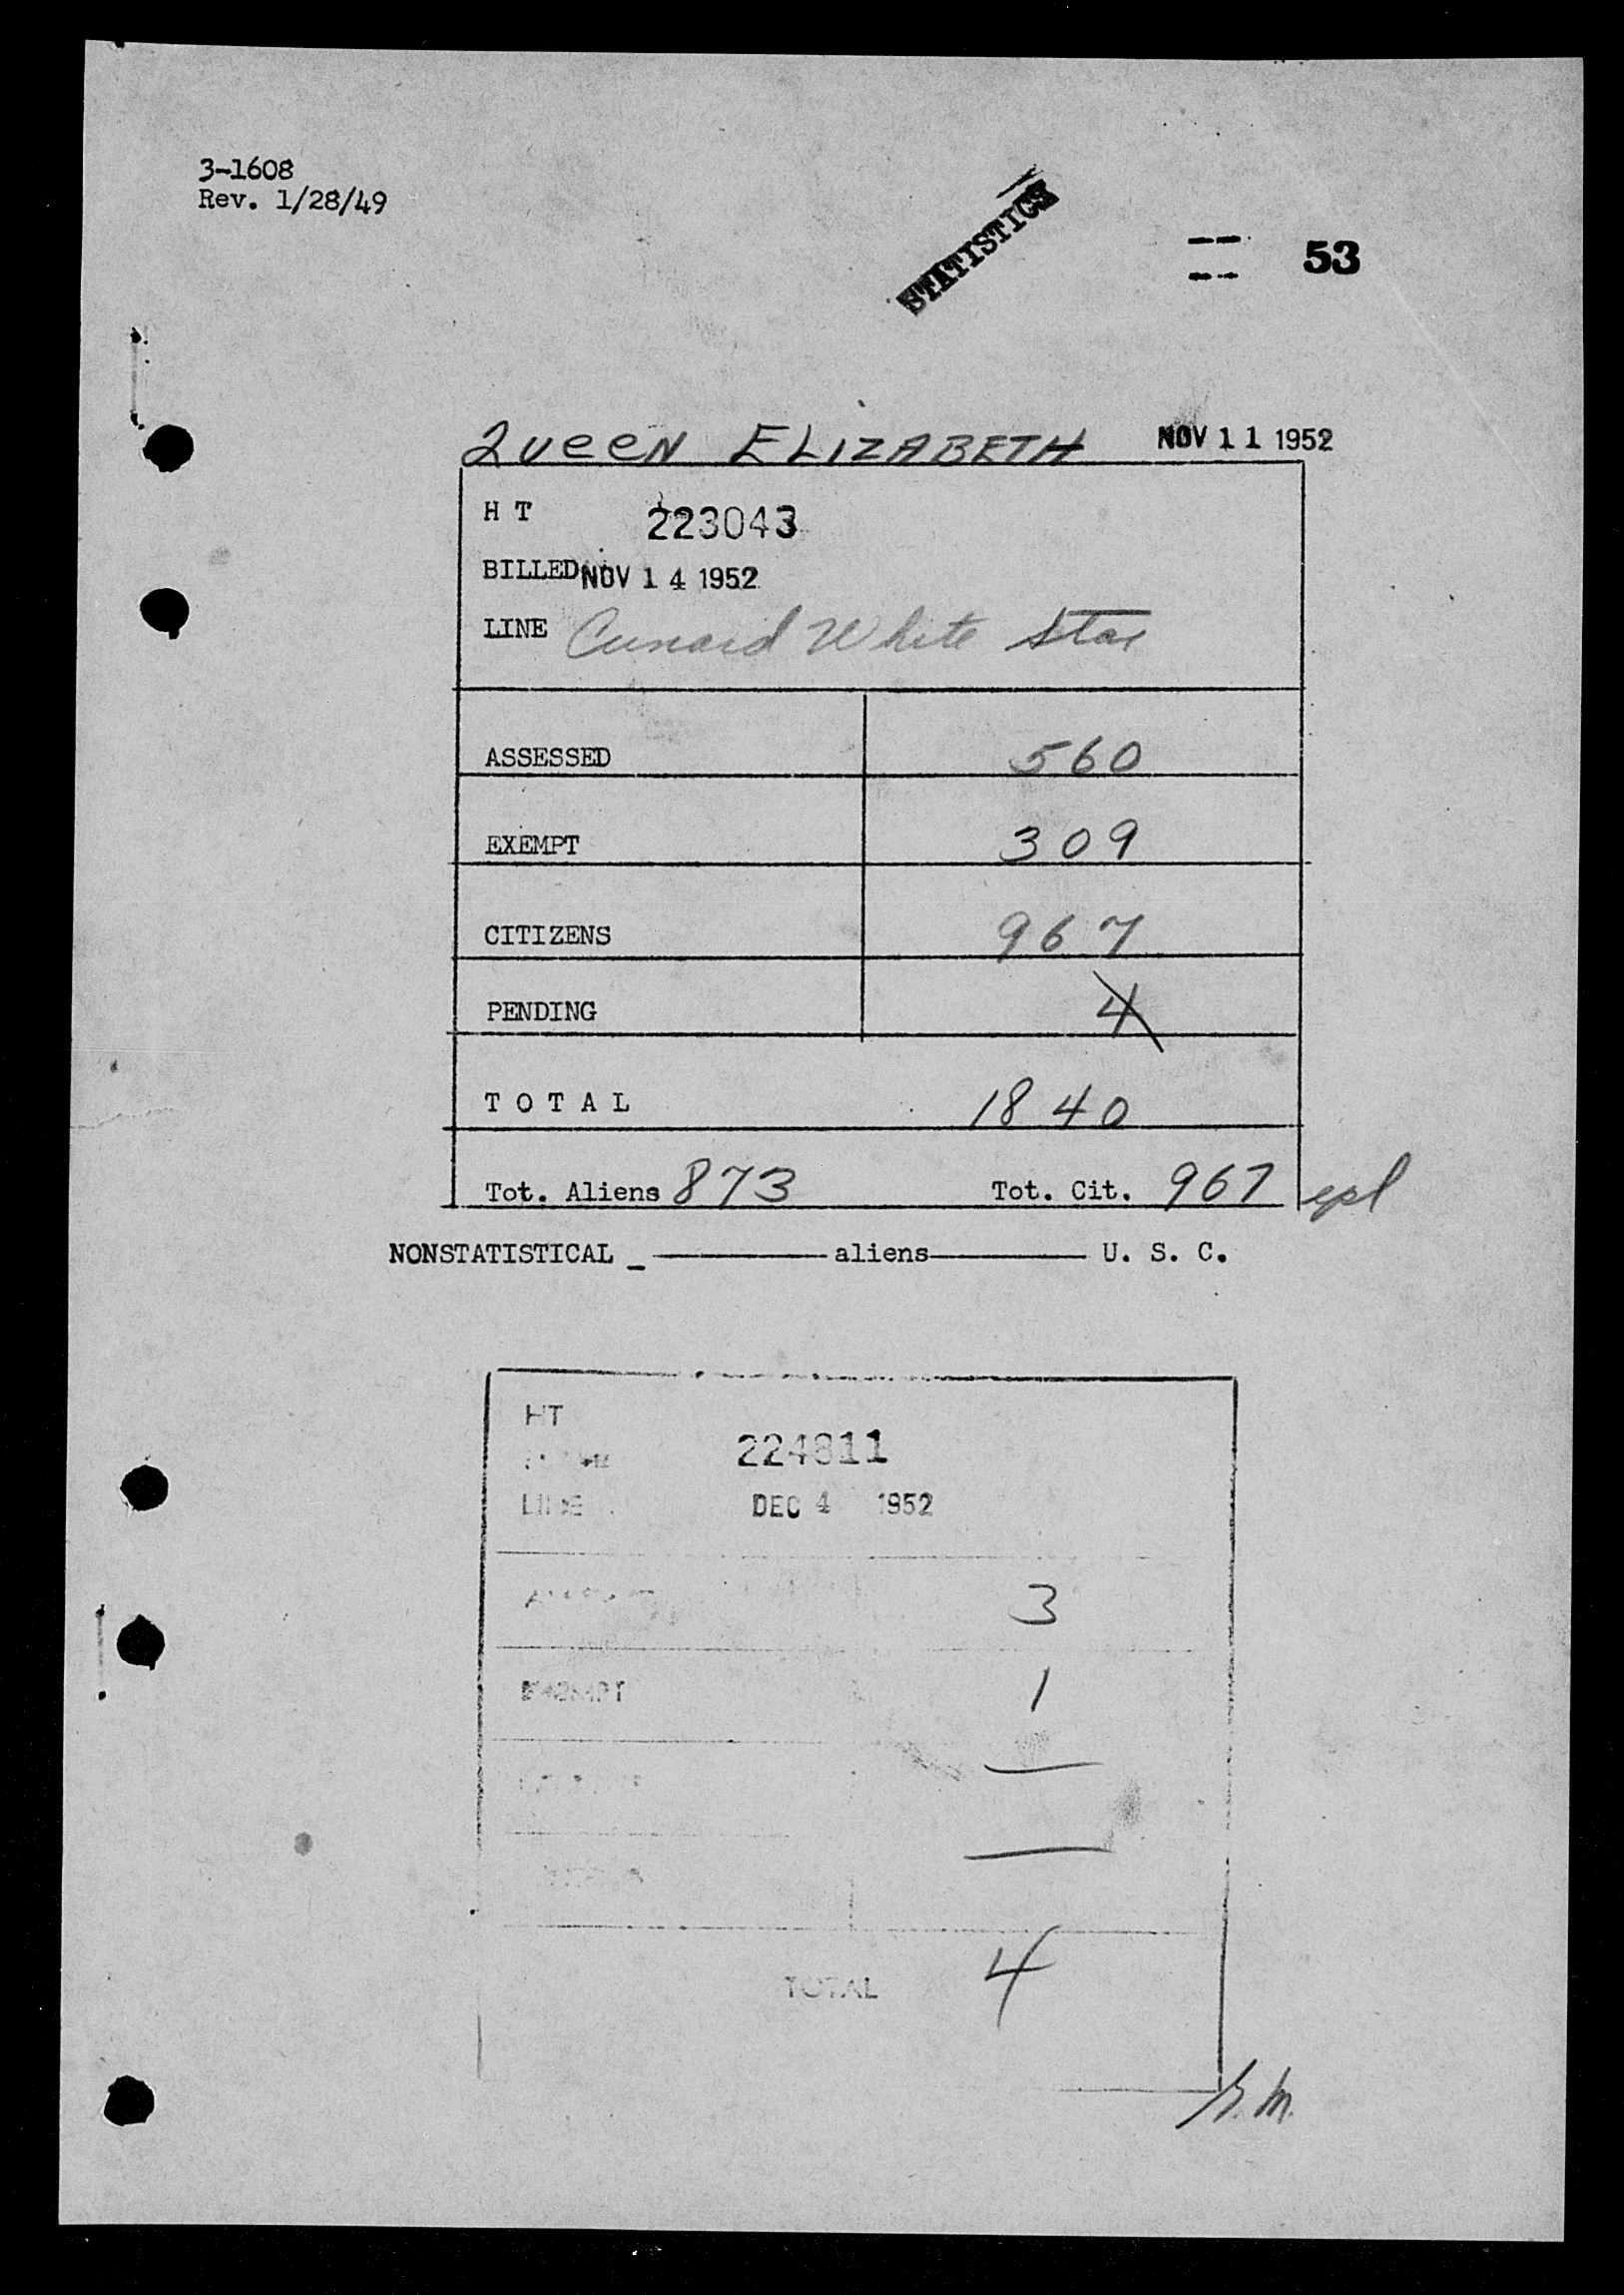 3-1608
Rev. 1/28/49
STATISTICS
53
QUEEN ELIZABETH NOV 11 1952
H T 223043
BILLED NOV 14 1952
LINE Cunard White Star
ASSESSED 560
EXEMPT 309
CITIZENS 967
PENDING 4
T O T A L 1840
Tot. Aliens 873 Tot. Cit. 967
NONSTATISTICAL _ aliens U. S. C.
HT
224811
LINE DEC 4 1952
3
EXEMPT 1
TOTAL 4